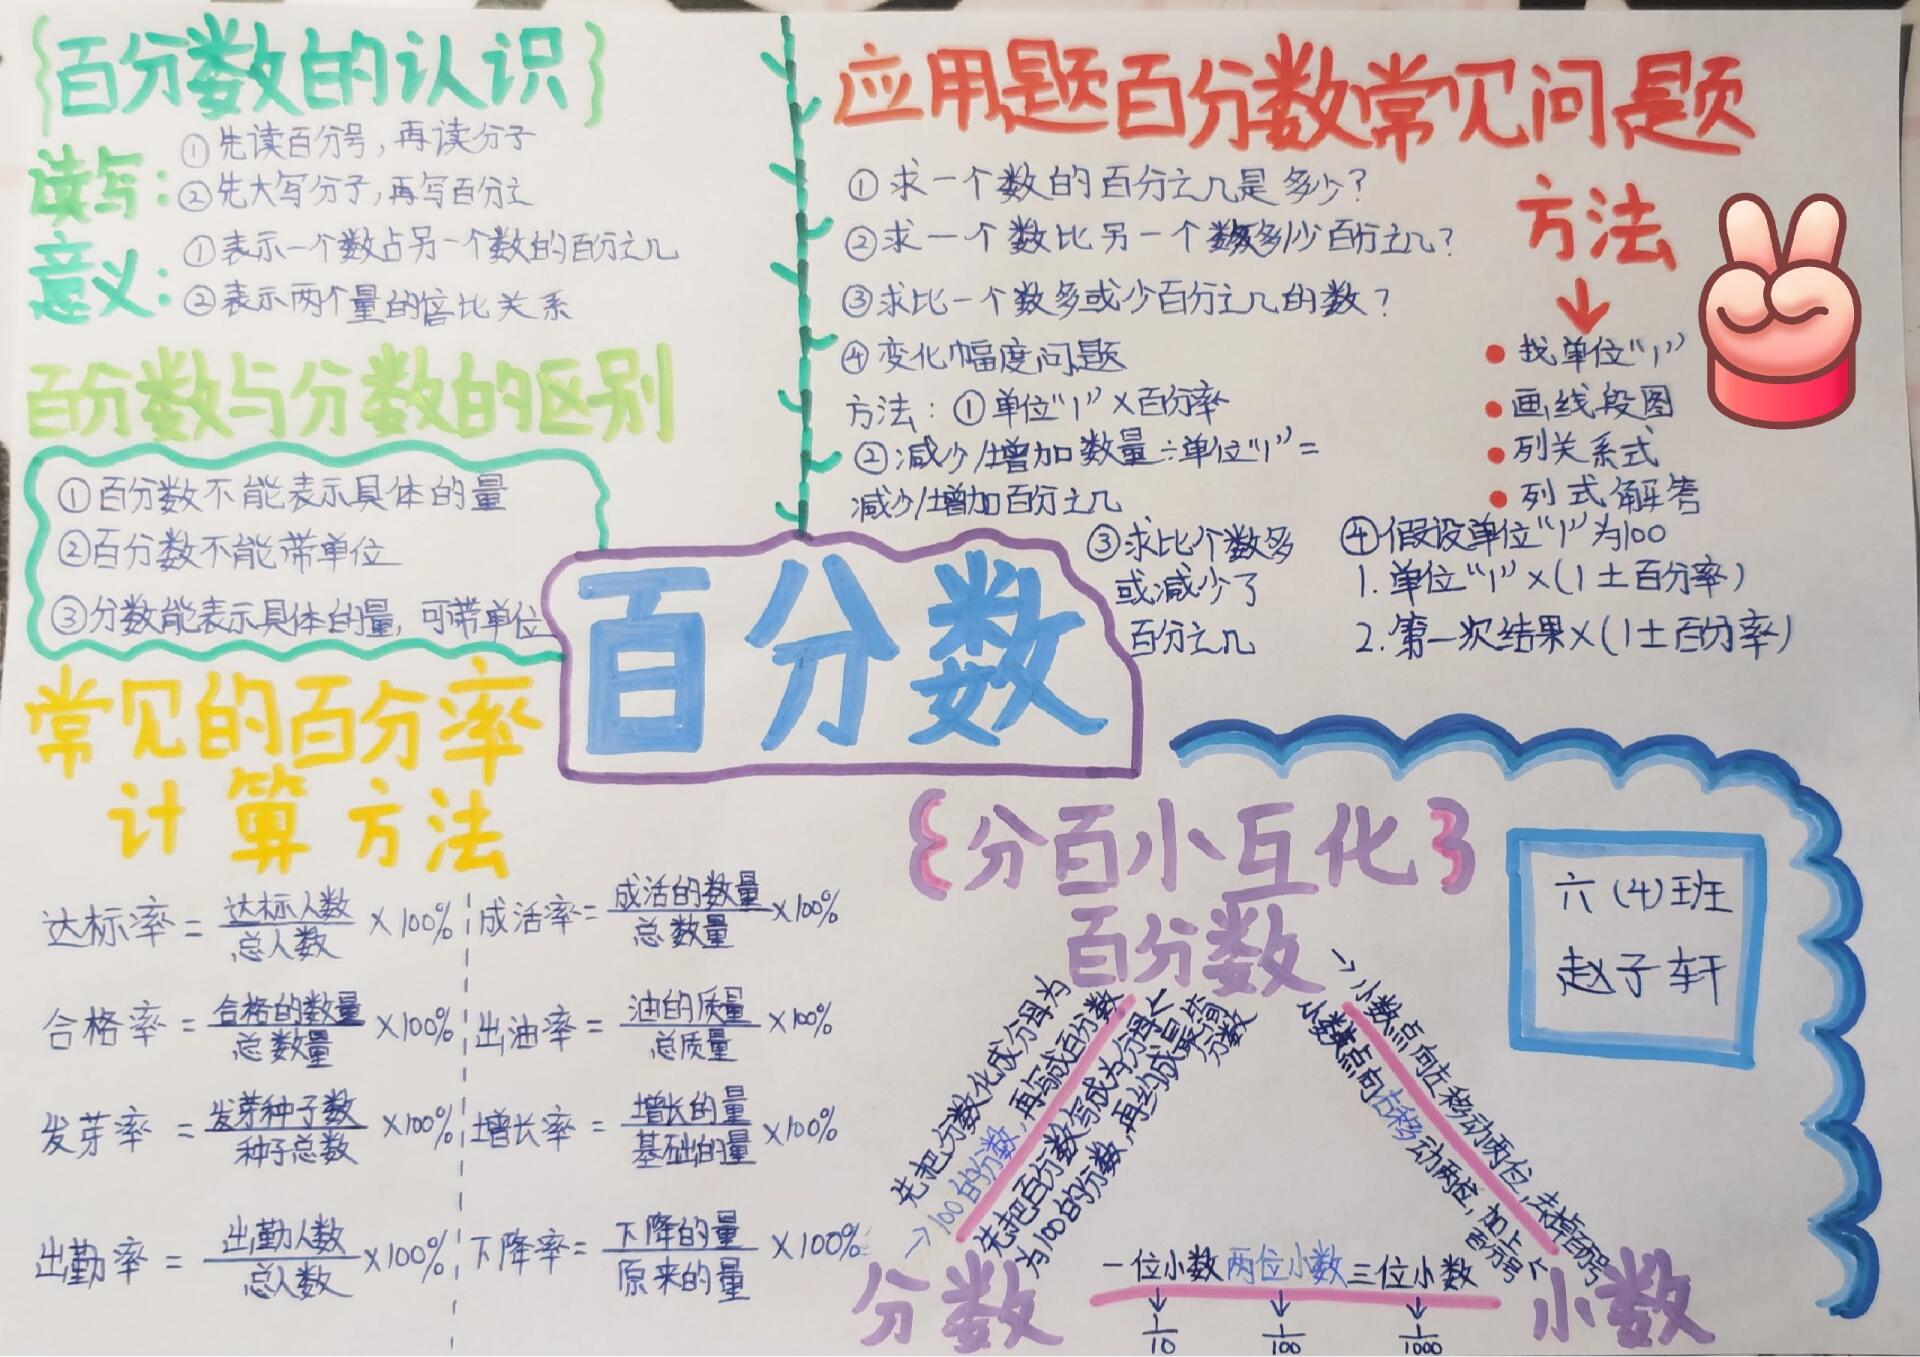 百分数的认识
读写：
①先读百分号，再读分子
②先大写分子，再写百分之
意义：
①表示一个数占另一个数的百分之几
②表示两个量的倍比关系
百分数与分数的区别
①百分数不能表示具体的量
②百分数不能带单位
③分数能表示具体的量，可带单位
常见的百分率
计算方法
达标率=达标人数/总人数×100%
合格率=合格的数量/总数量×100%
发芽率=发芽种子数/种子总数×100%
出勤率=出勤人数/总人数×100%
成活率=成活的数量/总数量×100%
出油率=油的质量/总质量×100%
增长率=增长的量/基础的量×100%
下降率=下降的量/原来的量×100%
百分数
应用题百分数常见问题
①求一个数的百分之几是多少？
②求一个数比另一个数多少百分之几？
③求比一个数多或少百分之几的数？
④变化幅度问题
方法：①单位“1”×百分率
②减少/增加数量÷单位“1”=
减少/增加百分之几
③求比个数多
或减少了
百分之几
④假设单位“1”为100
1.单位“1”×(1±百分率)
2.第一次结果×(1±百分率)
方法
↓
找单位“1”
画线段图
列关系式
列式解答
{分百小互化}
百分数
先把分数化成分母为
→100的分数，再写成百分数
先把百分数写成为分母
为100的分数，再约成最简
分数
→小数点向左移动两位，去掉百分号
小数点向右移动两位，加上
百分号
分数
一位小数 两位小数 三位小数
↓ ↓ ↓
1/10 1/100 1/1000
小数
六(4)班
赵子轩